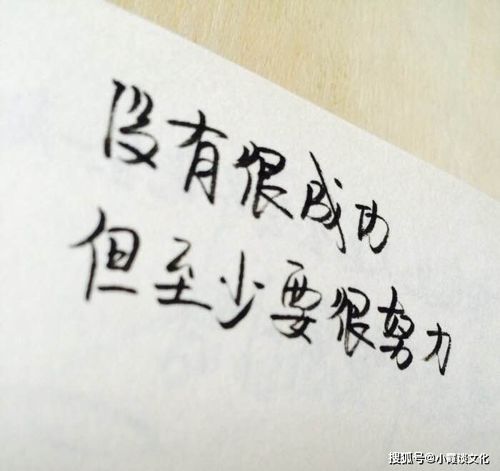 没有很成功
但至少要很努力
搜狐号@小霞谈文化